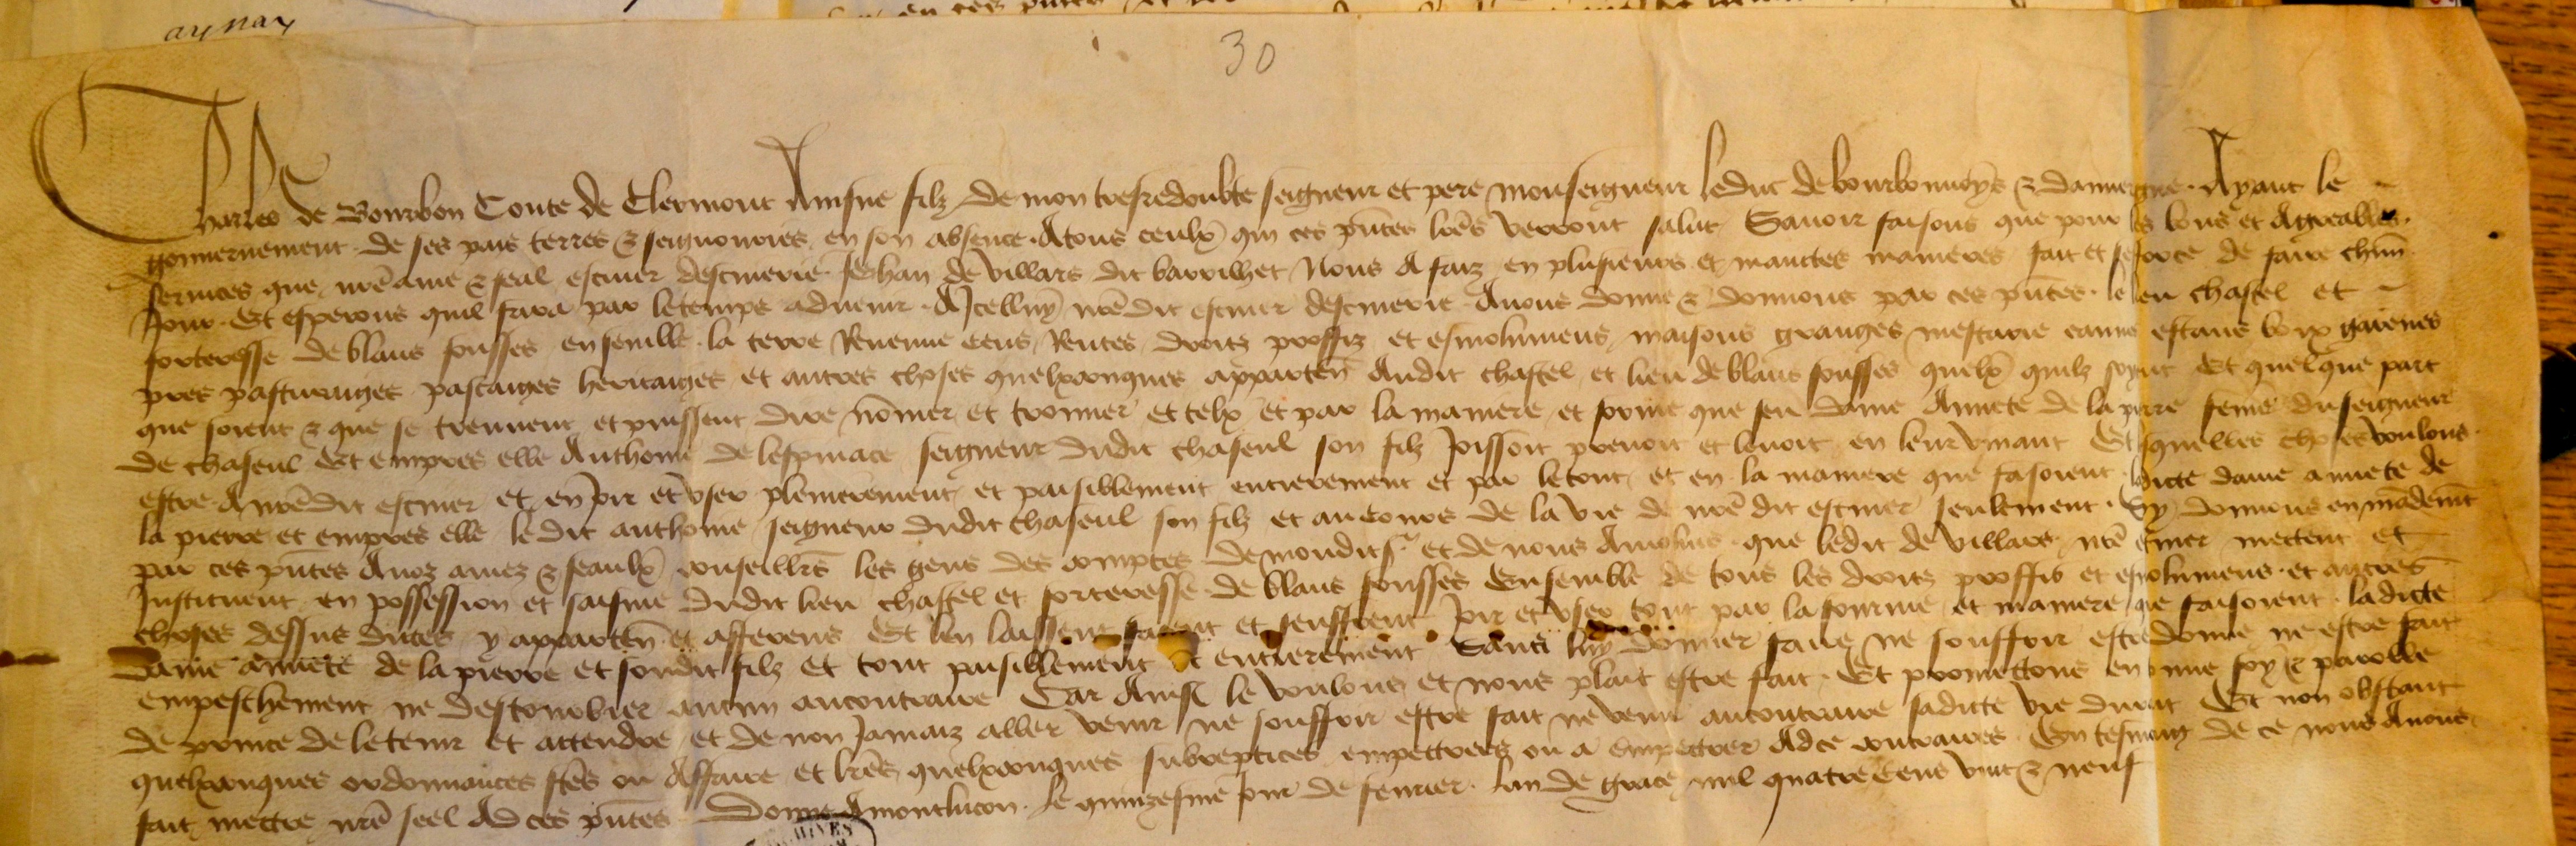 aynay
30
Charles de Bourbon Conte de Clermont Ainsne filz de mon tresredoubte seigneur et pere monseigneur le duc de bourbonnoys & dauuergne. Ayant le
gouuernement de ses pais terres & seignouries en son absence. Atous ceulx qui ces pñtes lrẽs verront salut Sauoir faisons que pour les bons et Aggreables
seruices que nrẽ ame & feal escuier descuierie Jehan de Villars dit barrilhet Nous A faiz en plusieurs et maintes manieres fait et sefforce de faire chũn
Jour. Et esperons quil fara par letemps aduenir. A Jcelluy nrẽdit escuier descuierie Auons donne & donnons par ces pñtes. le lieu chastel et
forteresse de blans fousses ensemble la terre Reuenue cens Rentes droitz proffiz et esmolumens maisons granges mestarie estans boix garenes
prez pasturaiges pascaiges heritaiges et autres choses quelxconques apparteñ Audit chastel et lieu de blans fousses quelx quilz soyent Et quelque part
que soient & que se treuuent et puissent dire nõmer et trouuer et telx et par la maniere et forme que feu dame Annete de la pierre feme du seigneur
de chaseul Et empres elle Anthoine de lespinace seigneur dudit chaseul son filz Joissoit prenoit et leuoit en leur viuant Et lesquelles choses voulons
estre A nrẽdit escuier et en Joir et vser plenierement et paisiblement entierement et par letout et en la maniere que fasoient ladicte dame annete de
la pierre et empres elle le dit anthoine seigneur dudit chaseul son filz et au cours de la vie de nrẽ dit escuier seulement. Sy donnons en mãdemt
par ces pñtes Anoz amez & feaulx conseilliers les gens des comptes de mondit sr et de nous Amolins que ledit de Villars nrẽ escuier mettent et
Jnstituent en possession et saisine dudit lieu chastel et forteresse de blans fousses Ensemble de tous les droitz proffis et esmolumens et autres
choses dessus dictes y apparteñ et afferens Et len laissent facent et seuffrent Joir et vser tout par la fourme et maniere que faisoient ladicte
dame annete de la pierre et sondit filz et tout paisiblement et entierement Sans luy donner faire ne souffrir estre donne ne estre fait
empeschement ne destourbier aucun aucontraire Car Ainsi le voulons et nous plait estre fait. Et promettons en bonne foy & parolle
de prince de letenir et attendre et de non Jamaiz aller venir ne souffrir estre fait ne venir aucontraire sadicte vie durant Et non obstant
quelxconques ordonnances ftẽs ou Affaire et lrẽs quelxconques subreptices empettrees ou a empettrer Adce contraires. En tesmoing de ce nous Auons
fait mettre nrẽ seel Ad ces pñtes Donne Amontlucon. le quinzesme jour de feurier. lan de grace mil quatre cens vint & neuf